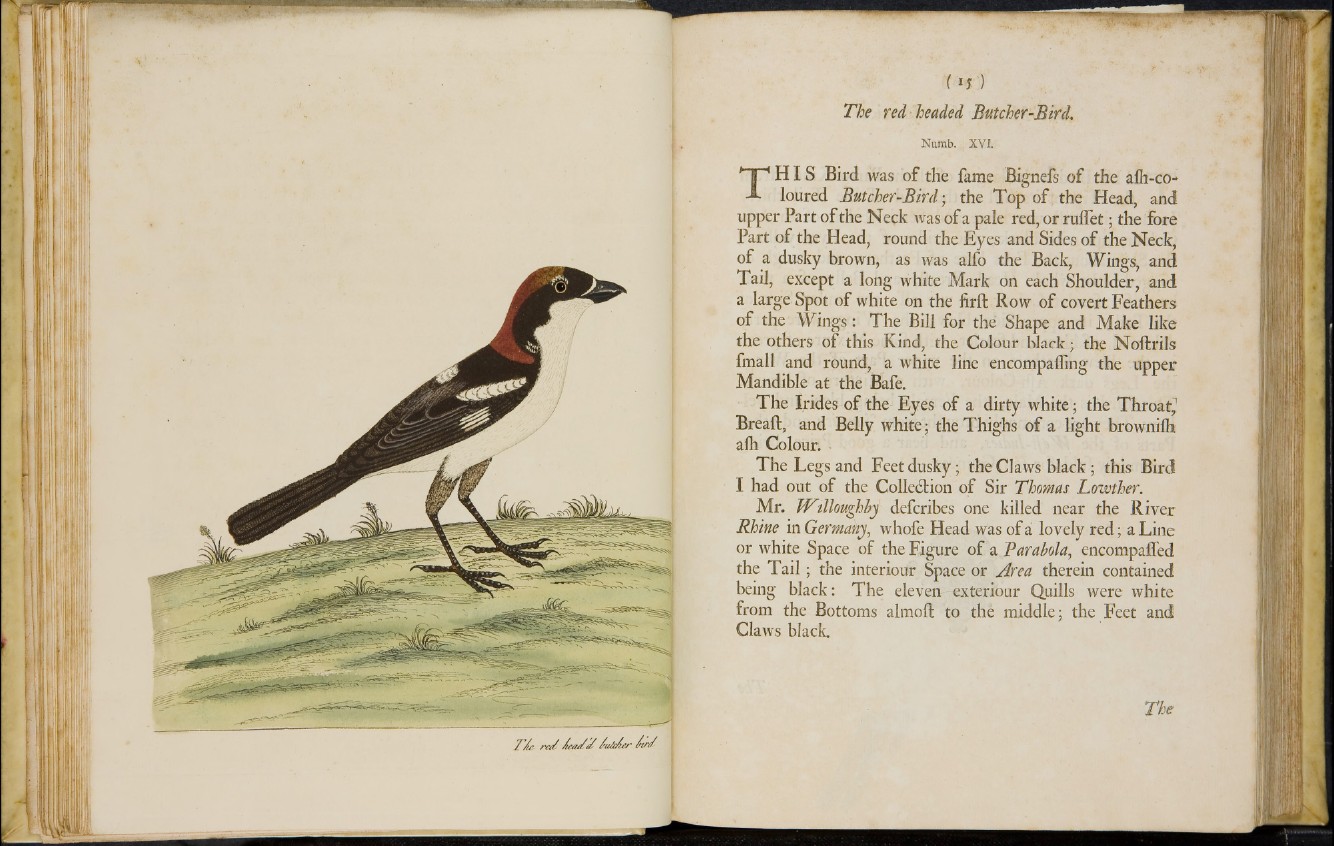 The red head'd butcher bird
( 15 )
The red headed Butcher-Bird.
Numb. XVI.
THIS Bird was of the ſame Bigneſs of the aſh-co-
loured Butcher-Bird; the Top of the Head, and
upper Part of the Neck was of a pale red, or ruſſet; the fore
Part of the Head, round the Eyes and Sides of the Neck,
of a dusky brown, as was alſo the Back, Wings, and
Tail, except a long white Mark on each Shoulder, and
a large Spot of white on the firſt Row of covert Feathers
of the Wings: The Bill for the Shape and Make like
the others of this Kind, the Colour black; the Noſtrils
ſmall and round, a white line encompaſſing the upper
Mandible at the Baſe.
The Irides of the Eyes of a dirty white; the Throat,
Breaſt, and Belly white; the Thighs of a light browniſh
aſh Colour.
The Legs and Feet dusky; the Claws black; this Bird
I had out of the Collection of Sir Thomas Lowther.
Mr. Willoughby deſcribes one killed near the River
Rhine in Germany, whoſe Head was of a lovely red; a Line
or white Space of the Figure of a Parabola, encompaſſed
the Tail; the interiour Space or Area therein contained
being black: The eleven exteriour Quills were white
from the Bottoms almoſt to the middle; the Feet and
Claws black.
The